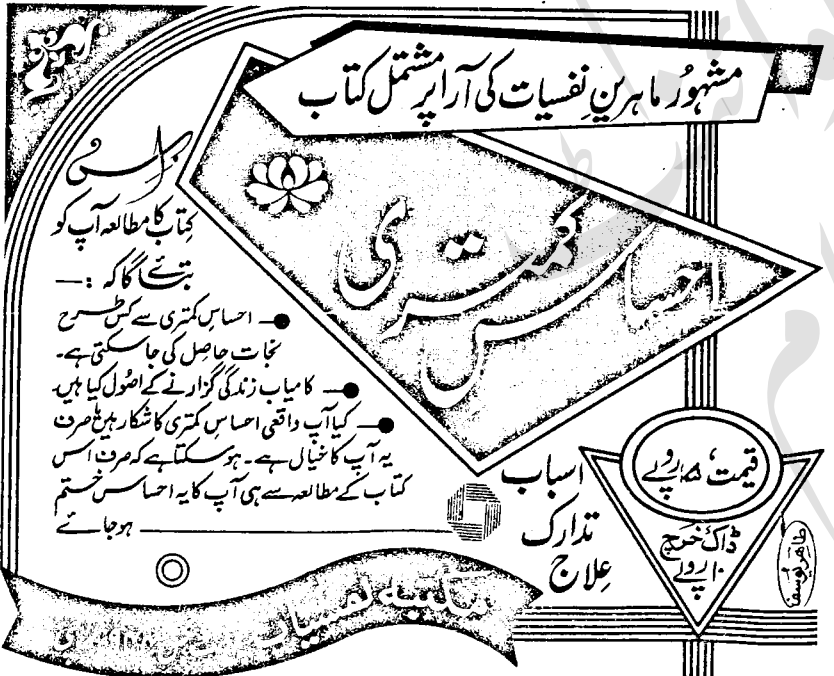 مشہور ماہرینِ نفسیات کی آرا پر مشتمل کتاب
احساس کمتری
اس
کتاب کا مطالعہ آپ کو
بتائے گا کہ :—
● احساسِ کمتری سے کس طرح
نجات حاصل کی جا سکتی ہے۔
● کامیاب زندگی گزارنے کے اصول کیا ہیں
● کیا آپ واقعی احساسِ کمتری کا شکار ہیں یا صرف
یہ آپ کا خیال ہے۔ ہو سکتا ہے کہ صرف اس
کتاب کے مطالعہ سے ہی آپ کا یہ احساس ختم
ہو جائے
اسباب
تدارک
علاج
قیمت ۱۵ روپے
ڈاک خرچ
۱۰ روپے
مکتبہ نفسیات